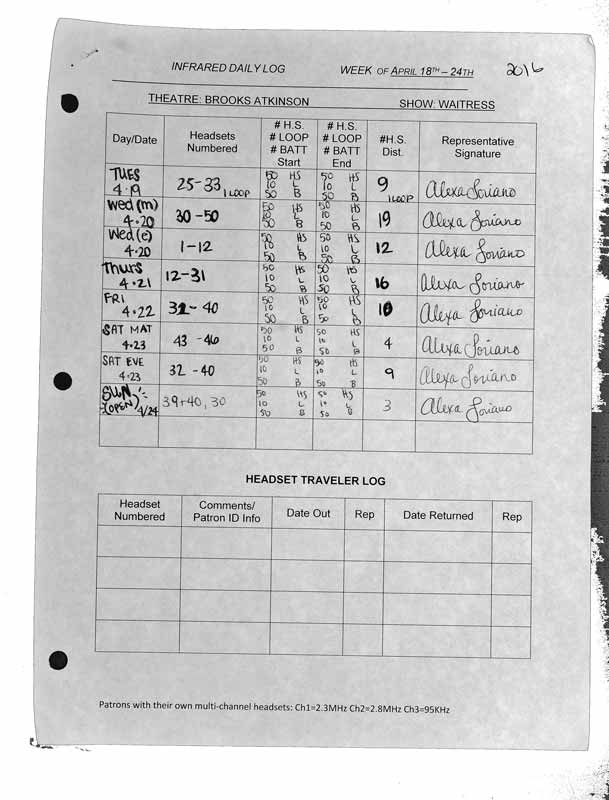 INFRARED DAILY LOG WEEK OF APRIL 18TH – 24TH 2016
THEATRE: BROOKS ATKINSON SHOW: WAITRESS
Day/Date Headsets Numbered # H.S. # LOOP # BATT Start # H.S. # LOOP # BATT End #H.S. Dist. Representative Signature
TUES 4·19 25-33 1 LOOP 50 HS 10 L 50 B 50 HS 10 L 50 B 9 1 LOOP Alexa Soriano
Wed (m) 4·20 30-50 50 HS 10 L 50 B 50 HS 10 L 50 B 19 Alexa Soriano
Wed (e) 4·20 1-12 50 HS 10 L 50 B 50 HS 10 L 50 B 12 Alexa Soriano
Thurs 4·21 12-31 50 HS 10 L 50 B 50 HS 10 L 50 B 16 Alexa Soriano
FRI 4·22 32-40 50 HS 10 L 50 B 50 HS 10 L 50 B 10 Alexa Soriano
SAT MAT 4·23 43-46 50 HS 10 L 50 B 50 HS 10 L 50 B 4 Alexa Soriano
SAT EVE 4·23 32-40 50 HS 10 L 50 B 50 HS 10 L 50 B 9 Alexa Soriano
SUN (OPEN) 4/24 39+40, 30 50 HS 10 L 50 B 50 HS 10 L 50 B 3 Alexa Soriano
HEADSET TRAVELER LOG
Headset Numbered Comments/ Patron ID Info Date Out Rep Date Returned Rep
Patrons with their own multi-channel headsets: Ch1=2.3MHz Ch2=2.8MHz Ch3=95KHz